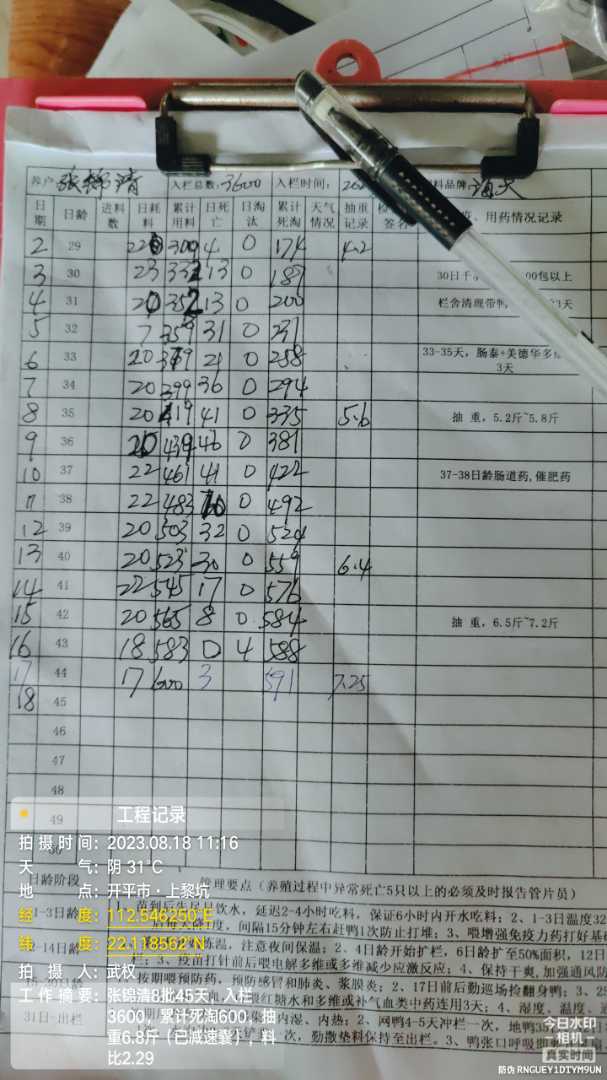 养户 张锦清 入栏总数:3600 入栏时间: 料品牌 海大
日期 日龄 进料数 日耗料 累计用料 日死亡 日淘汰 累计死淘 天气情况 抽重记录 签名 、用药情况记录
2 29 22 309 4 0 174 4.2
3 30 23 332 13 0 187 30日 00包以上
4 31 20 352 13 0 200 栏舍清理带鸭 3天
5 32 7 359 31 0 231
6 33 20 379 21 0 258 33-35天，肠泰+美德华多 3天
7 34 20 399 36 0 294
8 35 20 419 41 0 335 5.6 抽 重，5.2斤~5.8斤
9 36 20 439 46 0 381
10 37 22 461 41 0 422 37-38日龄肠道药,催肥药
11 38 22 483 70 0 492
12 39 20 503 32 0 524
13 40 20 523 30 0 559 6.4
14 41 22 545 17 0 576
15 42 20 565 8 0 584 抽 重，6.5斤~7.2斤
16 43 18 583 0 4 588
17 44 17 600 3 591 7.25
18 45
46
47
48
49
工程记录
拍摄时间: 2023.08.18 11:16
天 气: 阴 31℃
地 点: 开平市·上黎坑
经 度: 112.546250°E
纬 度: 22.118562°N
拍 摄 人: 武权
工作摘要: 张锦清8批45天，入栏3600，累计死淘600，抽重6.8斤（已减速囊），料比2.29
日龄阶段 管理要点（养殖过程中异常死亡5只以上的必须及时报告管片员）
1-3日龄 饮水，延迟2-4小时吃料，保证6小时内开水吃料；2、1-3日温度32
间隔15分钟左右赶鸭1次防止打堆；3、喂增强免疫力药打好基
-14日龄 保温，注意夜间保温；2、4日龄开始扩栏，6日龄扩至50%面积，12日
3、疫苗打针前后喂电解多维或多维减少应激反应；4、保持干爽,加强通风防
按期喂预防药，预防感冒和肺炎、浆膜炎；2、17日前后勤巡场捡翻身鸭；3、25
红糖水和多维或补气血类中药连用3天；4、湿度、温度、通
31日-出栏 内湿、内热；2、网鸭4-5天冲栏一次，地鸭3
次，勤撒垫料保持至出栏。3、鸭张口呼吸
今日水印
相机
真实时间
防伪 RNGUEY1DTYM9UN